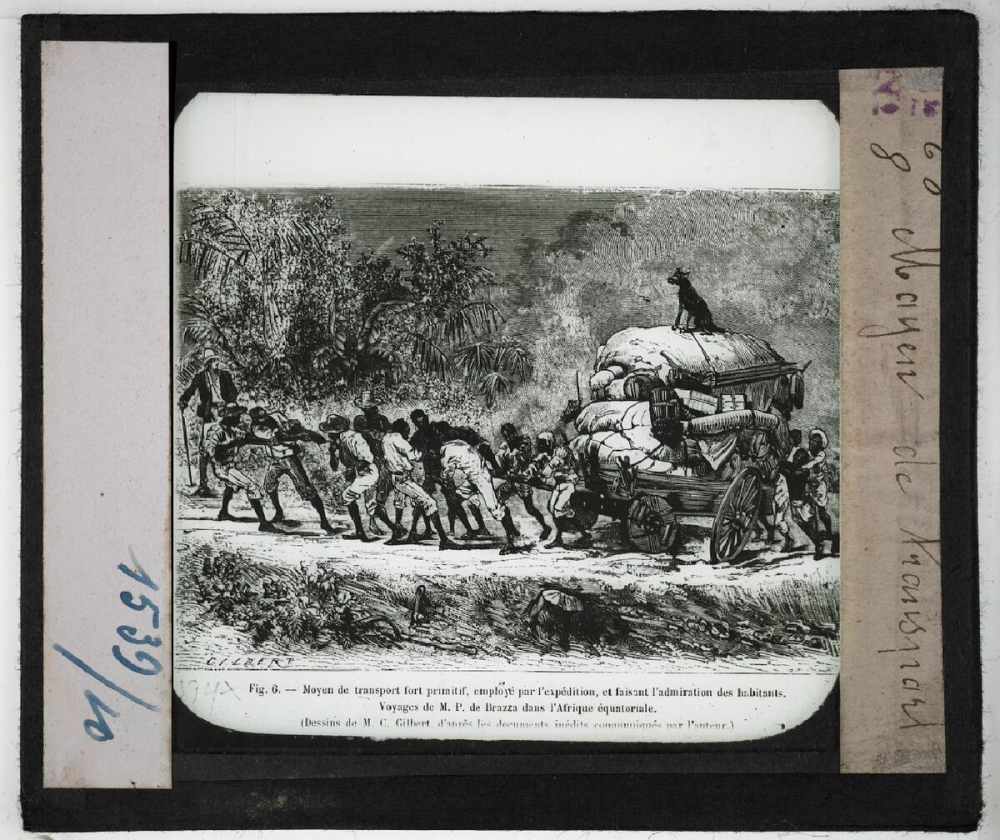 GILBERT
Fig. 6. — Moyen de transport fort primitif, employé par l'expédition, et faisant l'admiration des habitants.
Voyages de M. P. de Brazza dans l'Afrique équatoriale.
(Dessins de M. C. Gilbert, d'après les documents inédits communiqués par l'auteur.)
1539/10
6° Moyen de transport
N°
8